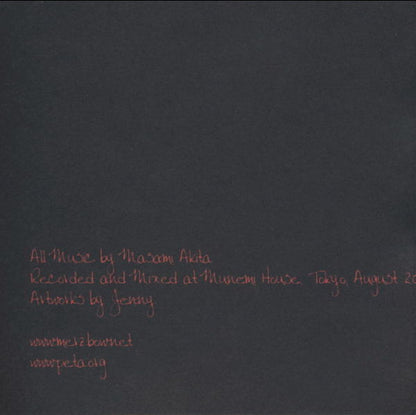 All Music by Masami Akita
Recorded and Mixed at Munemi House, Tokyo, August 20
Artworks by Jenny
www.merzbow.net
www.peta.org